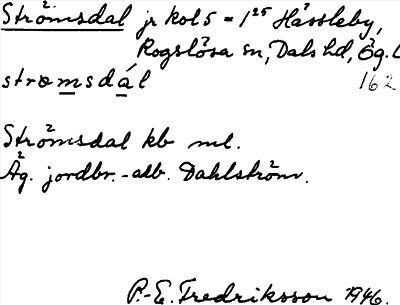 Strömsdal jr kol 5 = 1²⁵ Hässleby,
Rogslösa sn, Dals hd, Ög. l
162
strømsdál
Strömsdal kb ml.
Äg. jordbr.-arb. Dahlström.
P.-E. Fredriksson 1946.